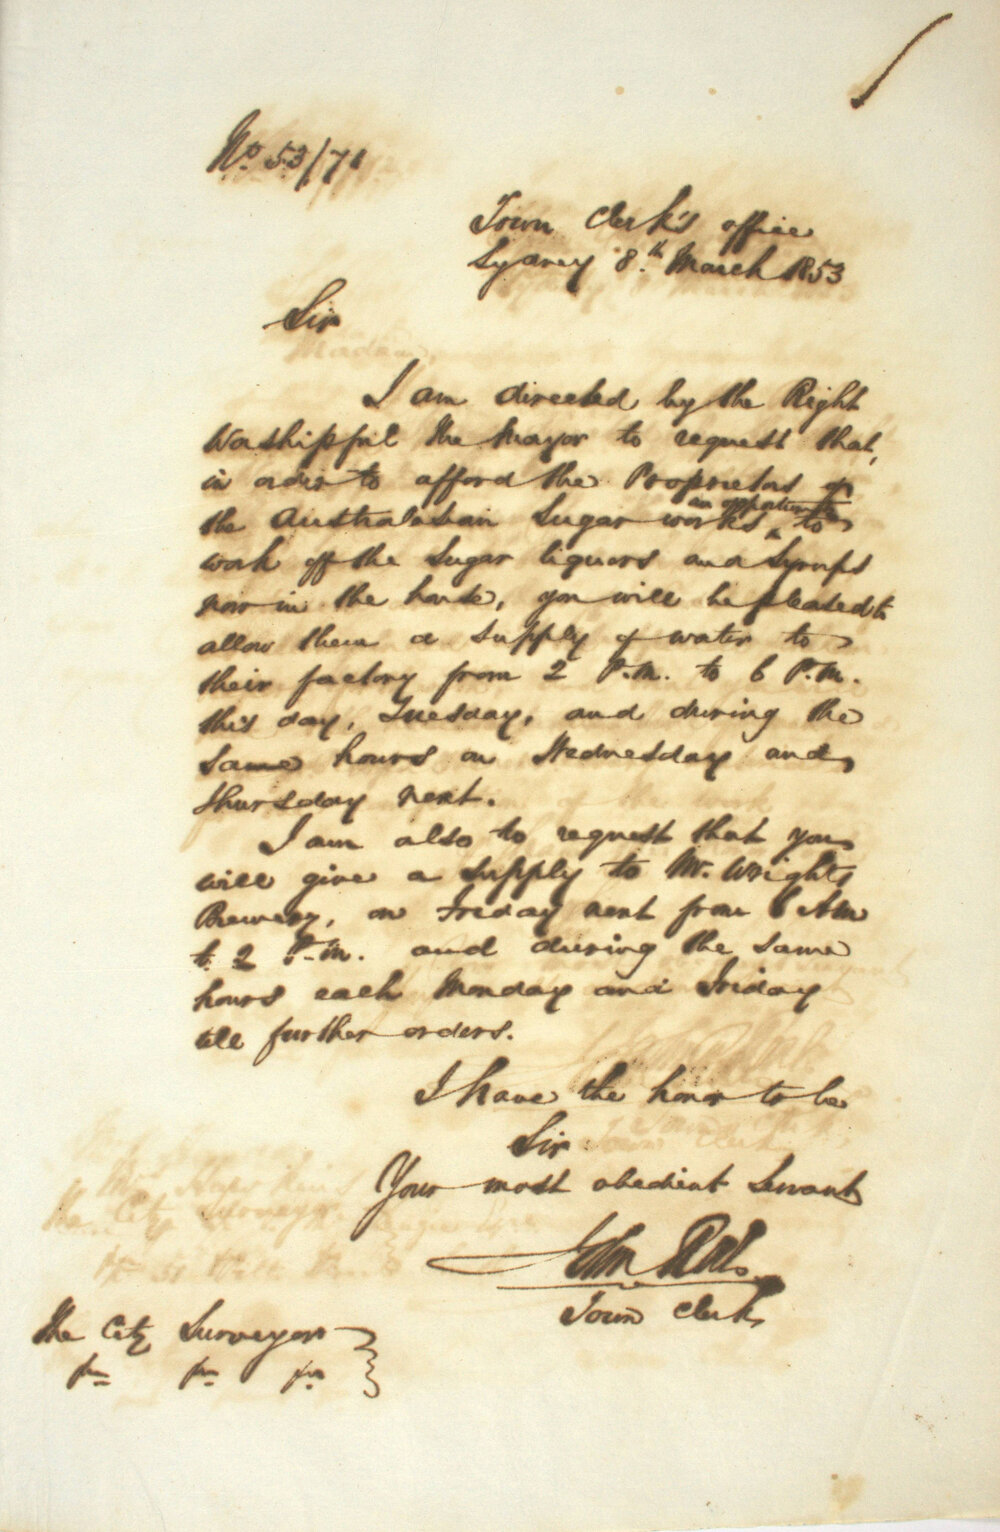 No. 53/71
Town Clerk's office
Sydney 8.th March 1853
Sir
I am directed by the Right
Worshipful the Mayor to request that,
in order to afford the Proprietors of
an opportunity
the Australasian Sugar works ^ to
work off the Sugar liquors and Syrups
now in the house, you will be pleased to
allow them a supply of water to
their factory from 2 P.M. to 6 P.M.
this day, Tuesday, and during the
same hours on Wednesday and
Thursday next.
I am also to request that you
will give a supply to Mr. Wrights
Brewery, on Friday next from 6 AM
to 2 P.M. and during the same
hours each Monday and Friday
till further orders.
I have the honor to be
Sir
Your most obedient Servant
John
Town Clerk
The City Surveyor